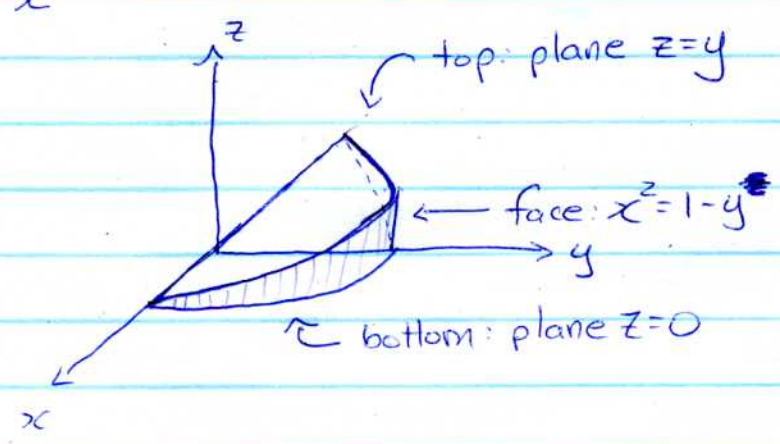 x
z
top: plane z=y
face: x²=1-y
y
bottom: plane z=0
x